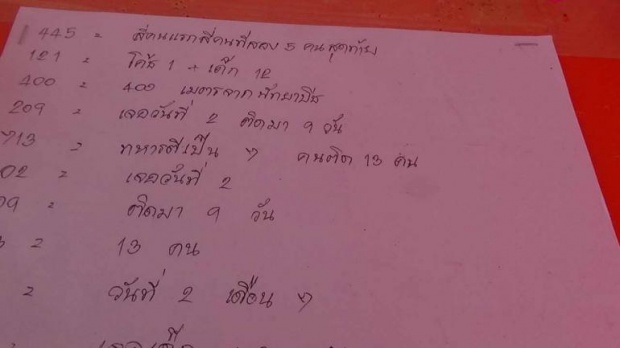 445 = สี่คนแรกสี่คนที่สอง 5 คนสุดท้าย
121 = โค้ช 1 + เด็ก 12
400 = 400 เมตรจากพัทยาบีช
209 = เจอวันที่ 2 ติดมา 9 วัน
713 = ทหารตีเป็น 7 คนติด 13 คน
02 = เจอวันที่ 2
09 = ติดมา 9 วัน
3 = 13 คน
= วันที่ 2 เดือน 7